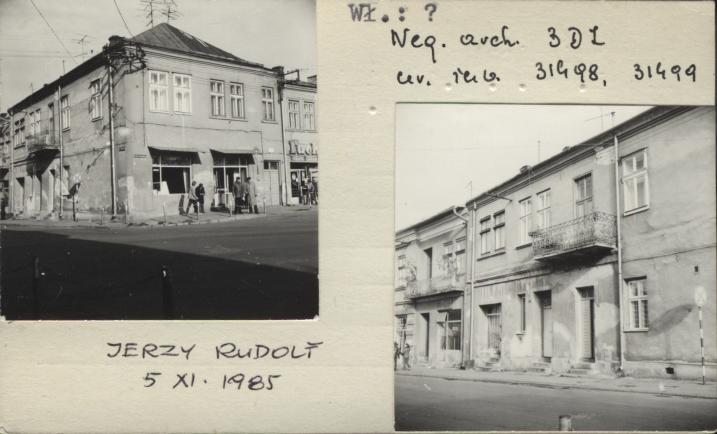 Wł.: ?
Neg. arch. 3DL
nr. inw. 31498, 31499
JERZY RUDOLF
5 XI. 1985